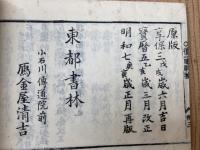 原版
享保二丁戌歳六月吉日
寶暦五乙亥歳三月改正
明和七庚寅歳正月再版
東都書林
小石川傳通院前
鴈金屋清吉